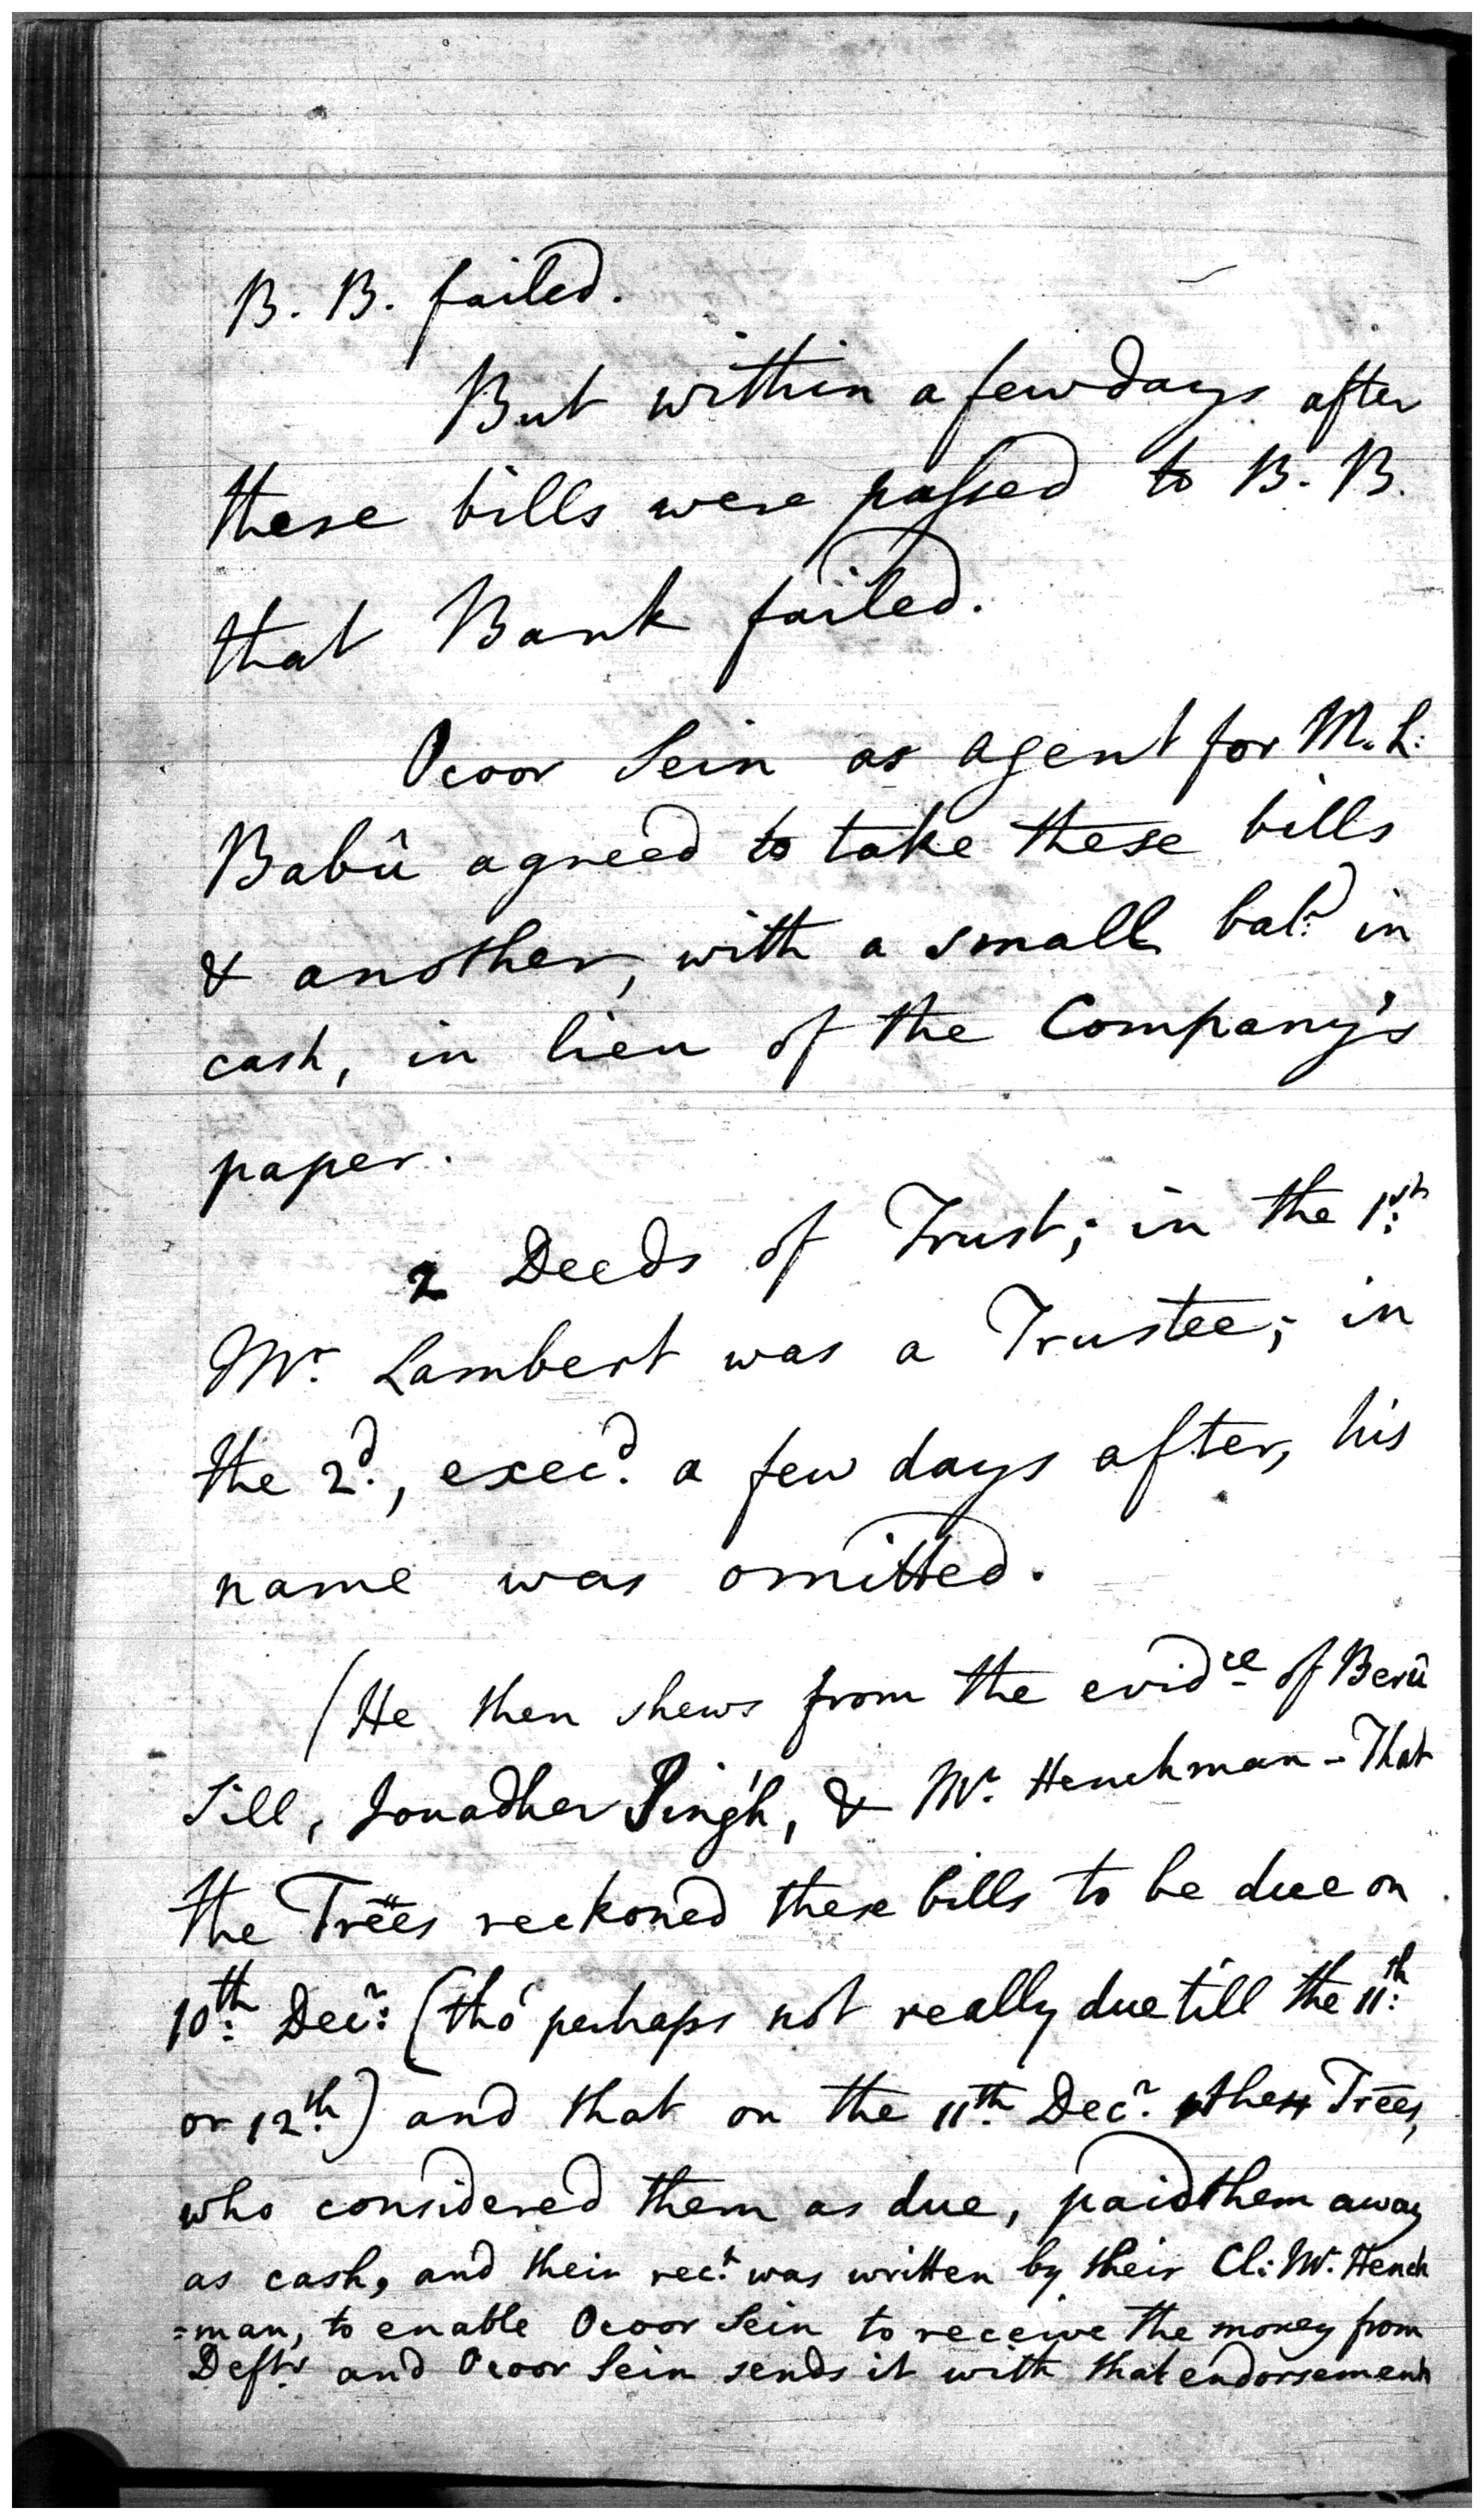 B. B. failed.
But within a few days after
these bills were passed to B. B.
that Bank failed.
Ocoor Sein as agent for M. L:
Babû agreed to take these bills
& another, with a small bal.e in
cash, in lieu of the Company's
paper.
2 Deeds of Trust; in the 1:st
Mr. Lambert was a Trustee; in
the 2d., exec.d a few days after, his
name was omitted.
(He then shews from the evidce of Berû
Sill, Jonadher Singh, & Mr. Henchman - That
the Trëes reckoned these bills to be due on
10:th Decr: (tho' perhaps not really due till the 11:th
or 12.th) and that on the 11th. Decr. the Trees,
who considered them as due, paid them away
as cash, and their rec.t was written by their Cl: Mr. Hench
=man, to enable Ocoor Sein to receive the money from
Defts. and Ocoor Sein sends it with that endorsement